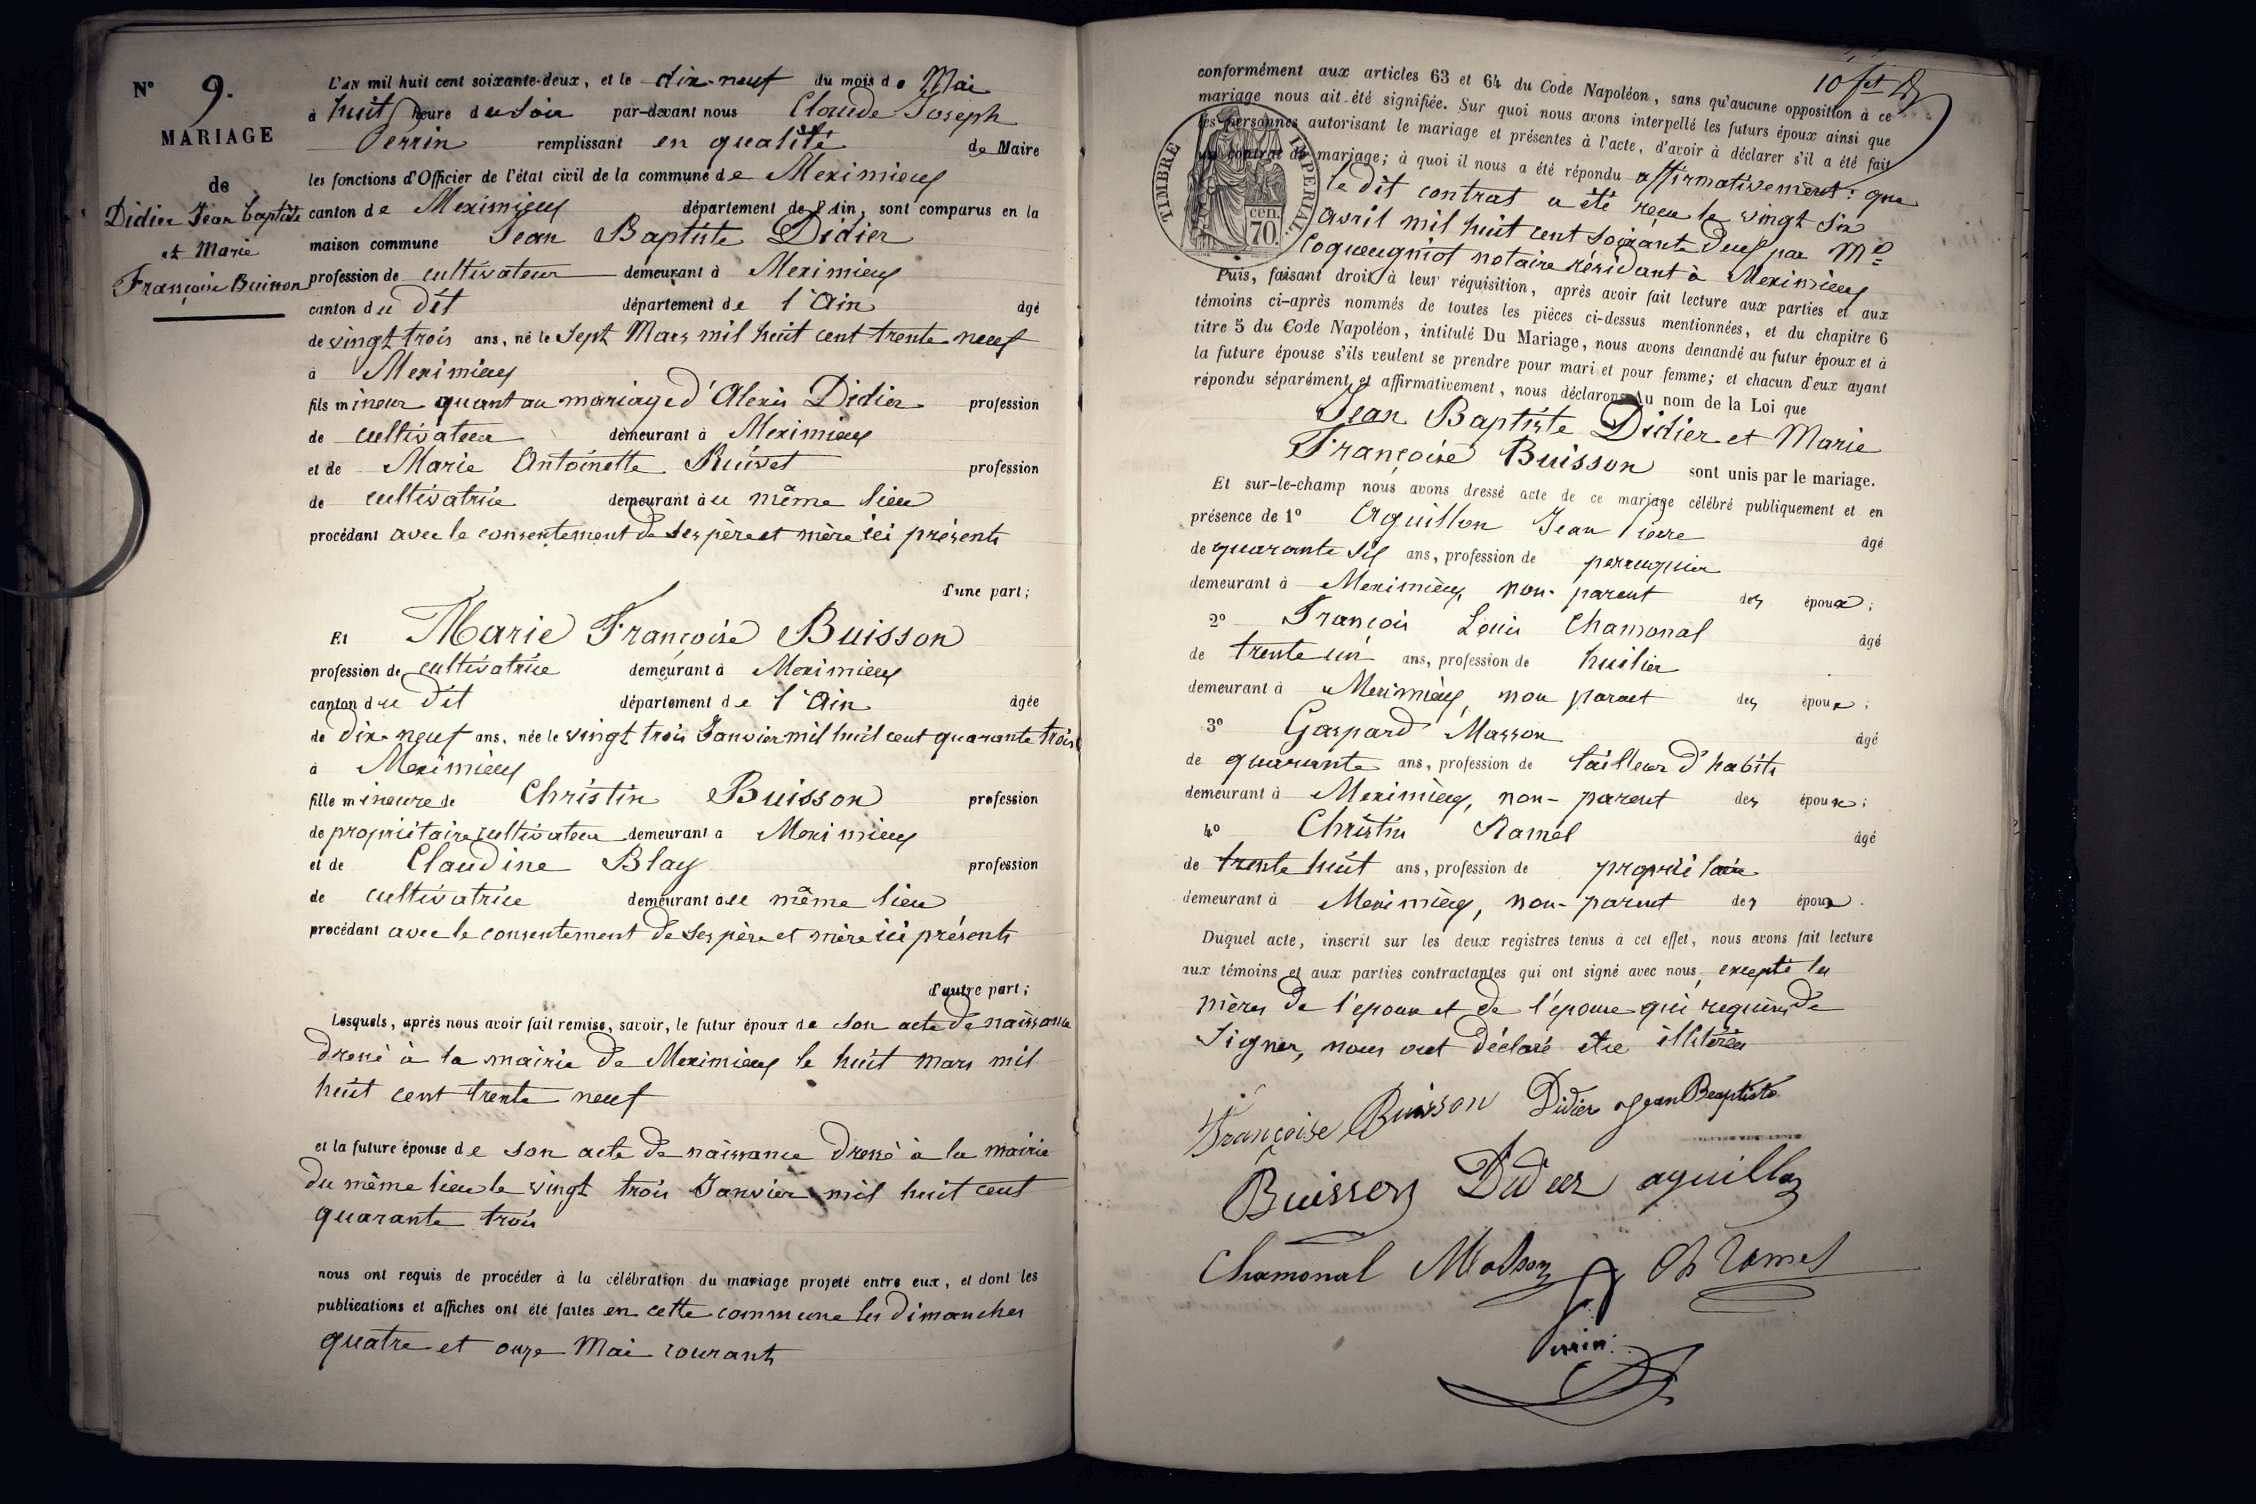 N° 9.
MARIAGE
de
Didier Jean Baptiste
et Marie
Françoise Buisson
L'AN mil huit cent soixante-deux, et le dix-neuf du mois de Mai
à huit heure du soir par-devant nous Claude Joseph
Perrin remplissant en qualité de Maire
les fonctions d'Officier de l'état civil de la commune de Meximieux
canton de Meximieux département de l'Ain, sont comparus en la
maison commune Jean Baptiste Didier
profession de cultivateur demeurant à Meximieux
canton du dit département de l'Ain âgé
de vingt trois ans, né le sept Mars mil huit cent trente neuf
à Meximieux
fils mineur quant au mariage d'Alexis Didier profession
de cultivateur demeurant à Meximieux
et de Marie Antoinette Ruivet profession
de cultivatrice demeurant au même lieu
procédant avec le consentement de ses père et mère ici présents
d'une part;
Et Marie Françoise Buisson
profession de cultivatrice demeurant à Meximieux
canton du dit département de l'Ain âgée
de dix-neuf ans, née le vingt trois Janvier mil huit cent quarante trois
à Meximieux
fille mineure de Christin Buisson profession
de propriétaire cultivateur demeurant à Meximieux
et de Claudine Blay profession
de cultivatrice demeurant au même lieu
procédant avec le consentement de ses père et mère ici présents
d'autre part;
Lesquels, après nous avoir fait remise, savoir, le futur époux de son acte de naissance
dressé à la mairie de Meximieux le huit mars mil
huit cent trente neuf
et la future épouse de son acte de naissance dressé à la mairie
du même lieu le vingt trois Janvier mil huit cent
quarante trois
nous ont requis de procéder à la célébration du mariage projeté entre eux, et dont les
publications et affiches ont été faites en cette commune les dimanches
quatre et onze Mai courant
conformément aux articles 63 et 64 du Code Napoléon, sans qu'aucune opposition à ce
mariage nous ait été signifiée. Sur quoi nous avons interpellé les futurs époux ainsi que
les personnes autorisant le mariage et présentes à l'acte, d'avoir à déclarer s'il a été fait
un contrat de mariage; à quoi il nous a été répondu affirmativement: que
le dit contrat a été reçu le vingt six
avril mil huit cent soixante deux par Me
Coqueugniot notaire résidant à Meximieux
TIMBRE IMPERIAL
cen.
70.
Puis, faisant droit à leur réquisition, après avoir fait lecture aux parties et aux
témoins ci-après nommés de toutes les pièces ci-dessus mentionnées, et du chapitre 6
titre 5 du Code Napoléon, intitulé Du Mariage, nous avons demandé au futur époux et à
la future épouse s'ils veulent se prendre pour mari et pour femme; et chacun d'eux ayant
répondu séparément et affirmativement, nous déclarons au nom de la Loi que
Jean Baptiste Didier et Marie
Françoise Buisson sont unis par le mariage.
Et sur-le-champ nous avons dressé acte de ce mariage célébré publiquement et en
présence de 1° Aguillon Jean Pierre âgé
de quarante six ans, profession de perruquier
demeurant à Meximieux, non-parent des époux;
2° François Louis Chamonal âgé
de trente un ans, profession de huilier
demeurant à Meximieux, non parent des époux;
3° Gaspard Masson âgé
de quarante ans, profession de tailleur d'habits
demeurant à Meximieux, non-parent des époux;
4° Christin Ramel âgé
de trente huit ans, profession de propriétaire
demeurant à Meximieux, non-parent des époux.
Duquel acte, inscrit sur les deux registres tenus à cet effet, nous avons fait lecture
aux témoins et aux parties contractantes qui ont signé avec nous, excepté les
mères de l'époux et de l'épouse qui requises de
signer, nous ont déclaré être illitérées
Françoise Buisson Didier Jean Baptiste
Buisson Didier aguillon
Chamonal Masson Ch Ramel
Perrin